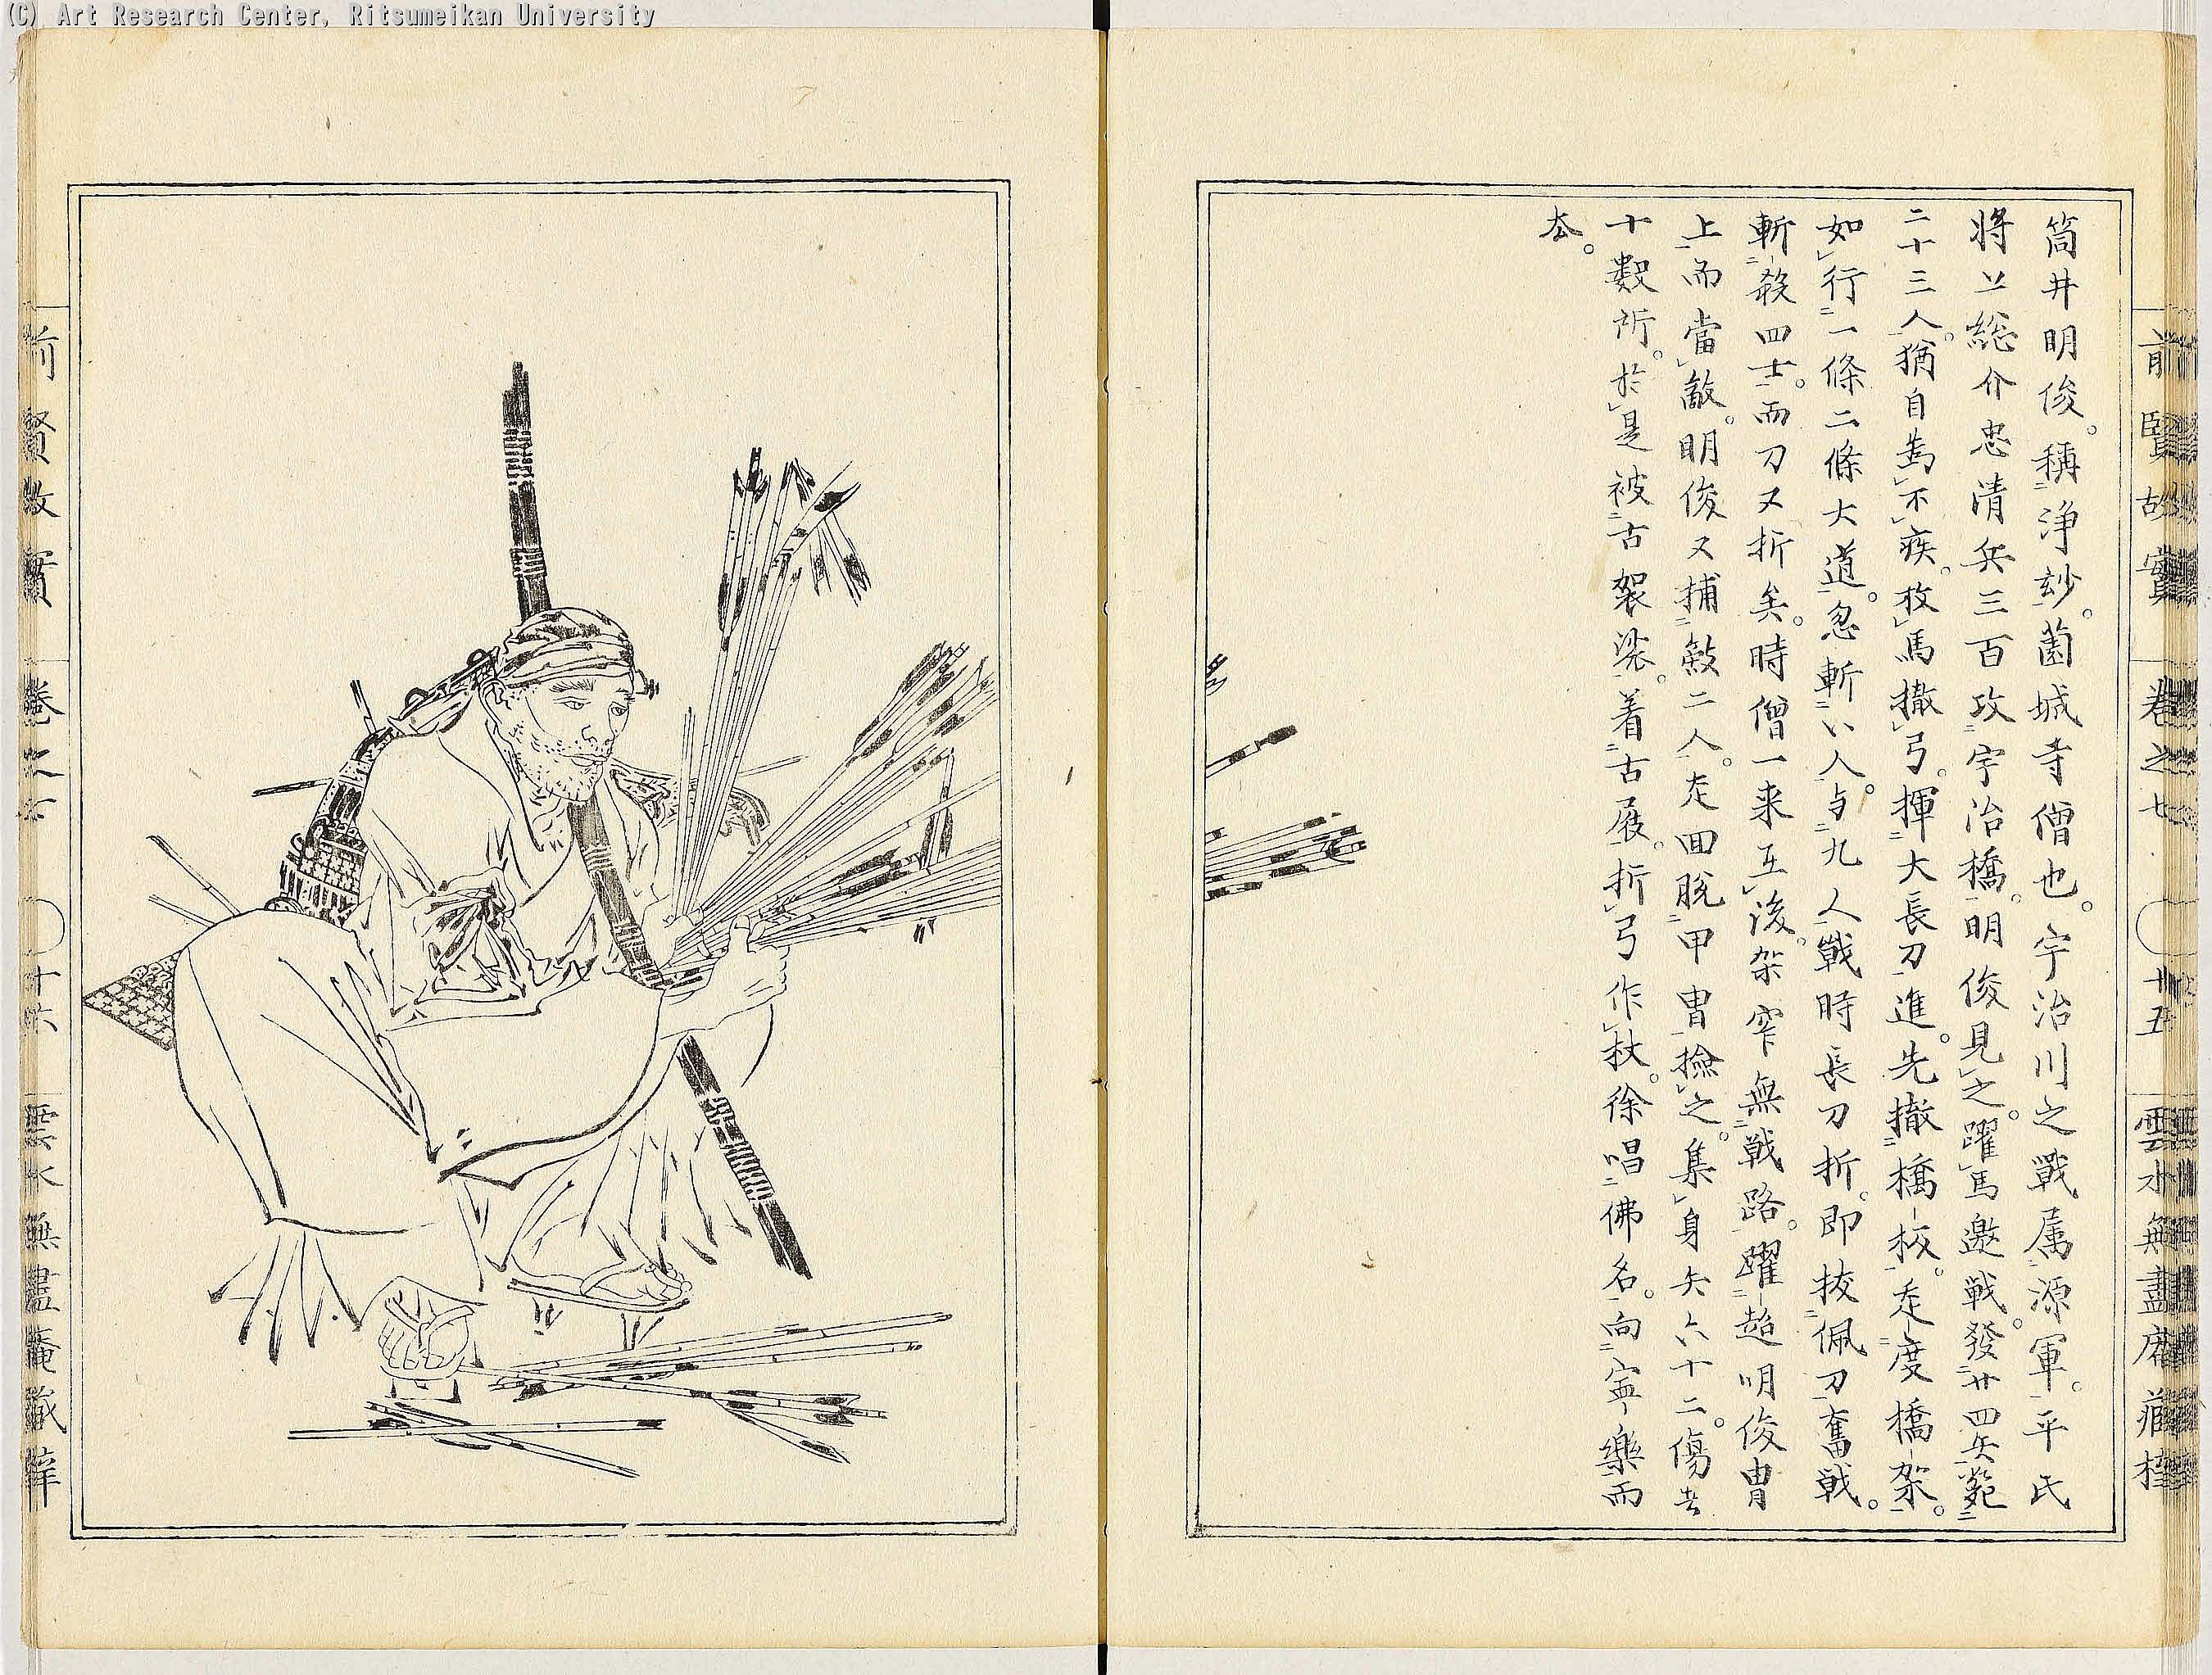 (C) Art Research Center, Ritsumeikan University
前賢故實 卷之七 十五 雲水無盡庵藏梓
筒井明俊。稱浄玅。薗城寺僧也。宇治川之戰属源軍。平氏
將上総介忠清兵三百攻宇治橋。明俊見之。躍馬邀戦。發廿四矢。毙
二十三人。猶自為不疾。放馬撒弓。揮大長刀進。先撤橋板。走度橋架。
如行一條二條大道。忽斬八人。与九人戰時長刀折。即抜佩刀奮戦。
斬殺四士。而刀又折矣。時僧一来互後。架窄無戦路。躍超明俊冑
上而當敵。明俊又捕敵二人。走回脱甲冑撿之。集身矢六十二。傷者
十數所。於是被古袈裟。着古屐。折弓作杖。徐唱佛名。向寧樂而
厺。
前賢故實 卷之 十六 雲水無盡庵藏梓